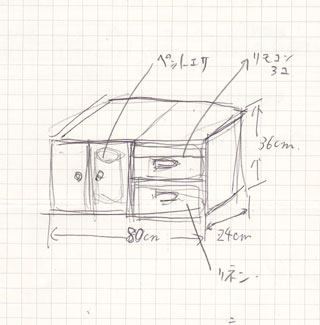 ペットエサ
リモコン
3コ
36cm
80cm
24cm
リネン